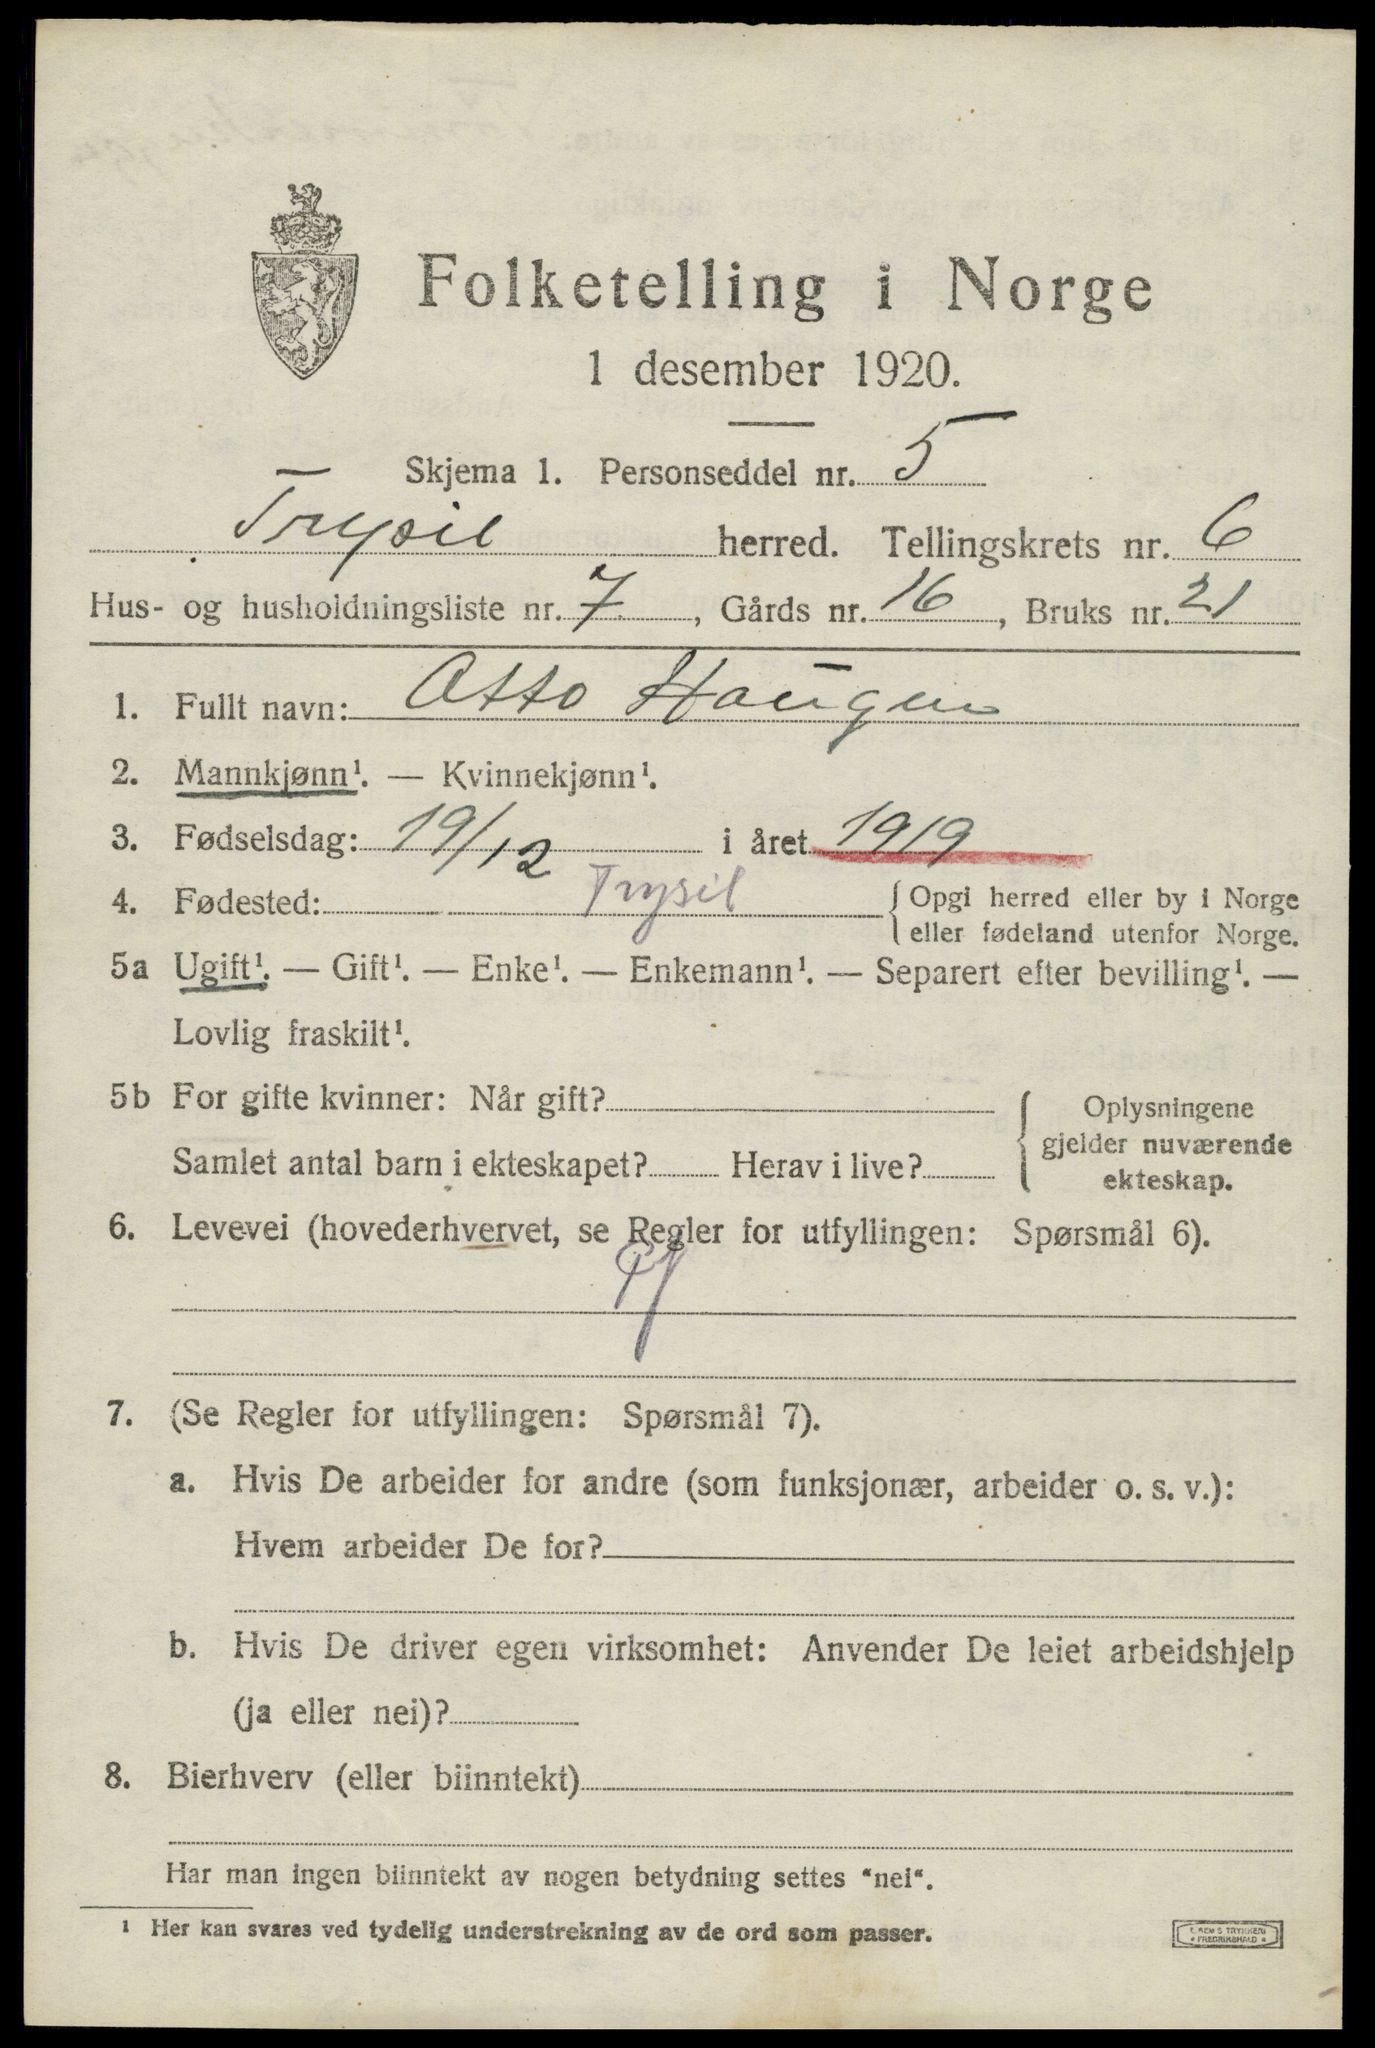 Folketelling i Norge
1 desember 1920.
Skjema 1. Personseddel nr. 5
Trysil herred. Tellingskrets nr. 6
Hus- og husholdningsliste nr. 7, Gårds nr. 16, Bruks nr. 21
1. Fullt navn: Otto Haugen
2. Mannkjønn¹. — Kvinnekjønn¹.
3. Fødselsdag: 19/12 i året 1919
4. Fødested: Trysil { Opgi herred eller by i Norge
eller fødeland utenfor Norge.
5a Ugift¹. — Gift¹. — Enke¹. — Enkemann¹. — Separert efter bevilling¹. —
Lovlig fraskilt¹.
5b For gifte kvinner: Når gift?
Samlet antal barn i ekteskapet? Herav i live?
{ Oplysningene
gjelder nuværende
ekteskap.
6. Levevei (hovederhvervet, se Regler for utfyllingen: Spørsmål 6).
7. (Se Regler for utfyllingen: Spørsmål 7).
a. Hvis De arbeider for andre (som funksjonær, arbeider o. s. v.):
Hvem arbeider De for?
b. Hvis De driver egen virksomhet: Anvender De leiet arbeidshjelp
(ja eller nei)?
8. Bierhverv (eller biinntekt)
Har man ingen biinntekt av nogen betydning settes "nei".
¹ Her kan svares ved tydelig understrekning av de ord som passer.